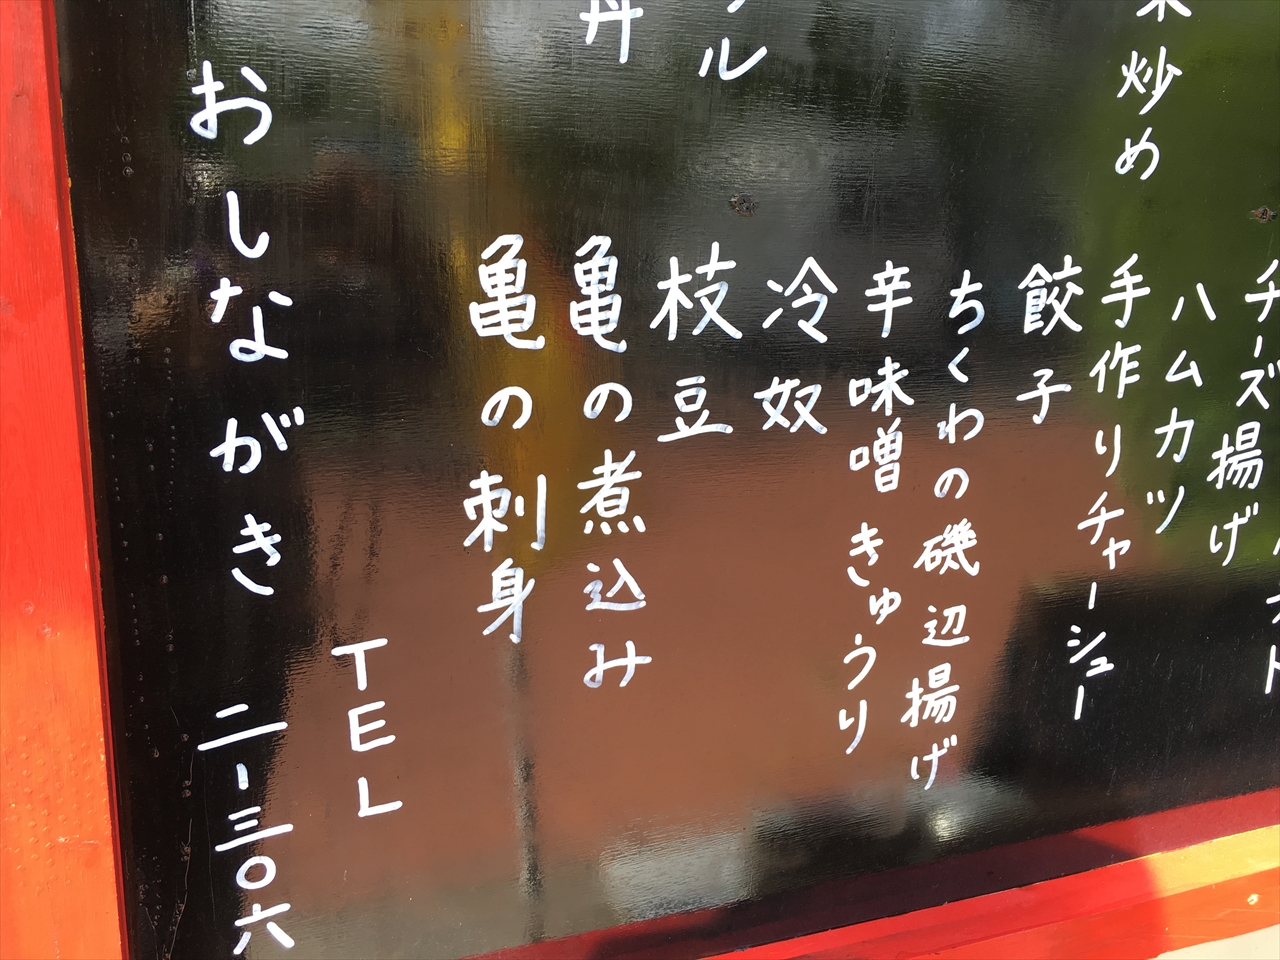 チーズ揚げ
ハムカツ
炒め
手作りチャーシュー
餃子
ちくわの磯辺揚げ
辛味噌きゅうり
ル
冷奴
枝豆
丼
亀の煮込み
亀の刺身
TEL
二-三〇六
おしながき